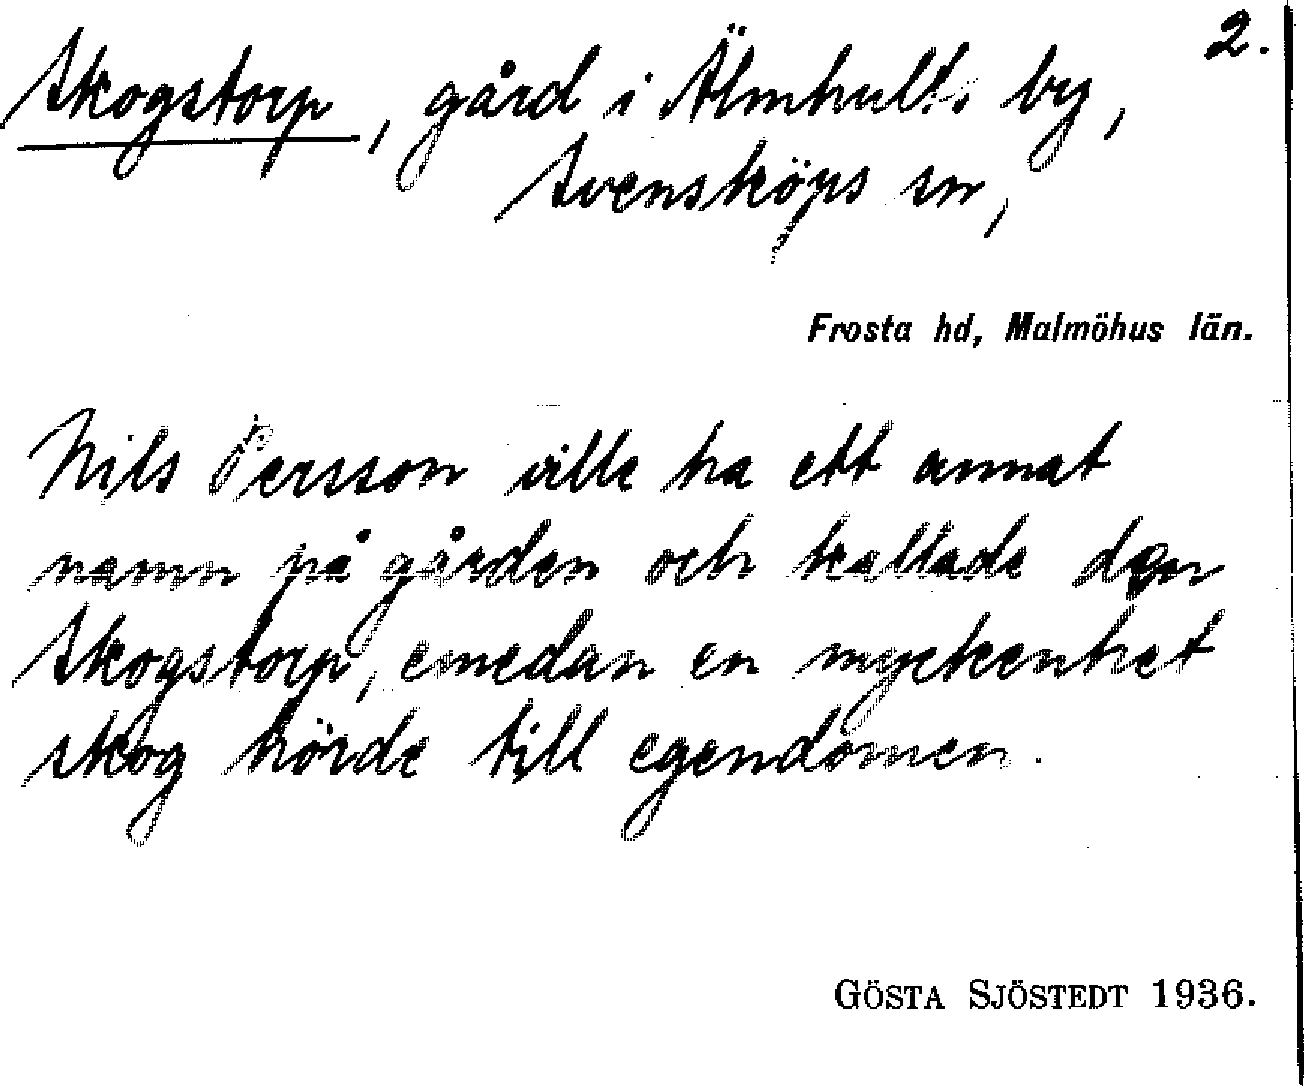 2.
Skogstorp, gård i Älmhults by,
Svensköps sn,
Frosta hd, Malmöhus län.
Nils Persson ville ha ett annat
namn på gården och kallade den
Skogstorp, emedan en myckenhet
skog hörde till egendomen.
GÖSTA SJÖSTEDT 1936.